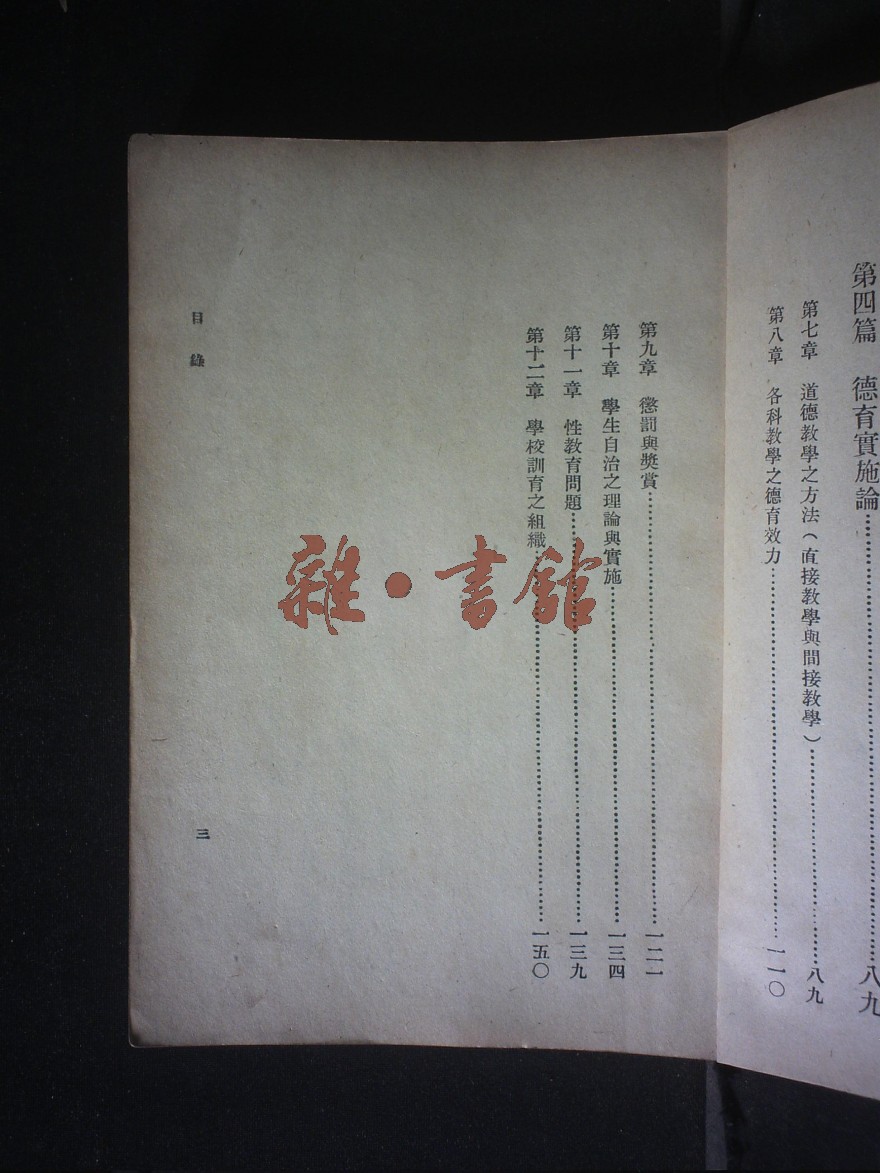 第四篇　德育實施論……八九
第七章　道德教學之方法（直接教學與間接教學）……八九
第八章　各科教學之德育效力……一一〇
第九章　懲罰與獎賞……一二一
第十章　學生自治之理論與實施……一三四
第十一章　性教育問題……一三九
第十二章　學校訓育之組織……一五〇
目錄
三
雜·書館